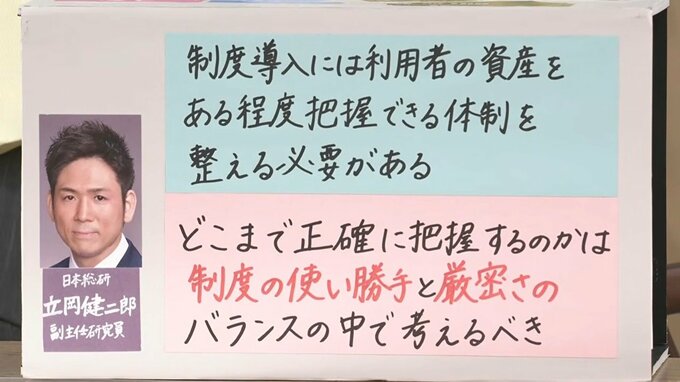 制度導入には利用者の資産を
ある程度把握できる体制を
整える必要がある
どこまで正確に把握するのかは
制度の使い勝手と厳密さの
バランスの中で考えるべき
日本総研
立岡健二郎
副主任研究員